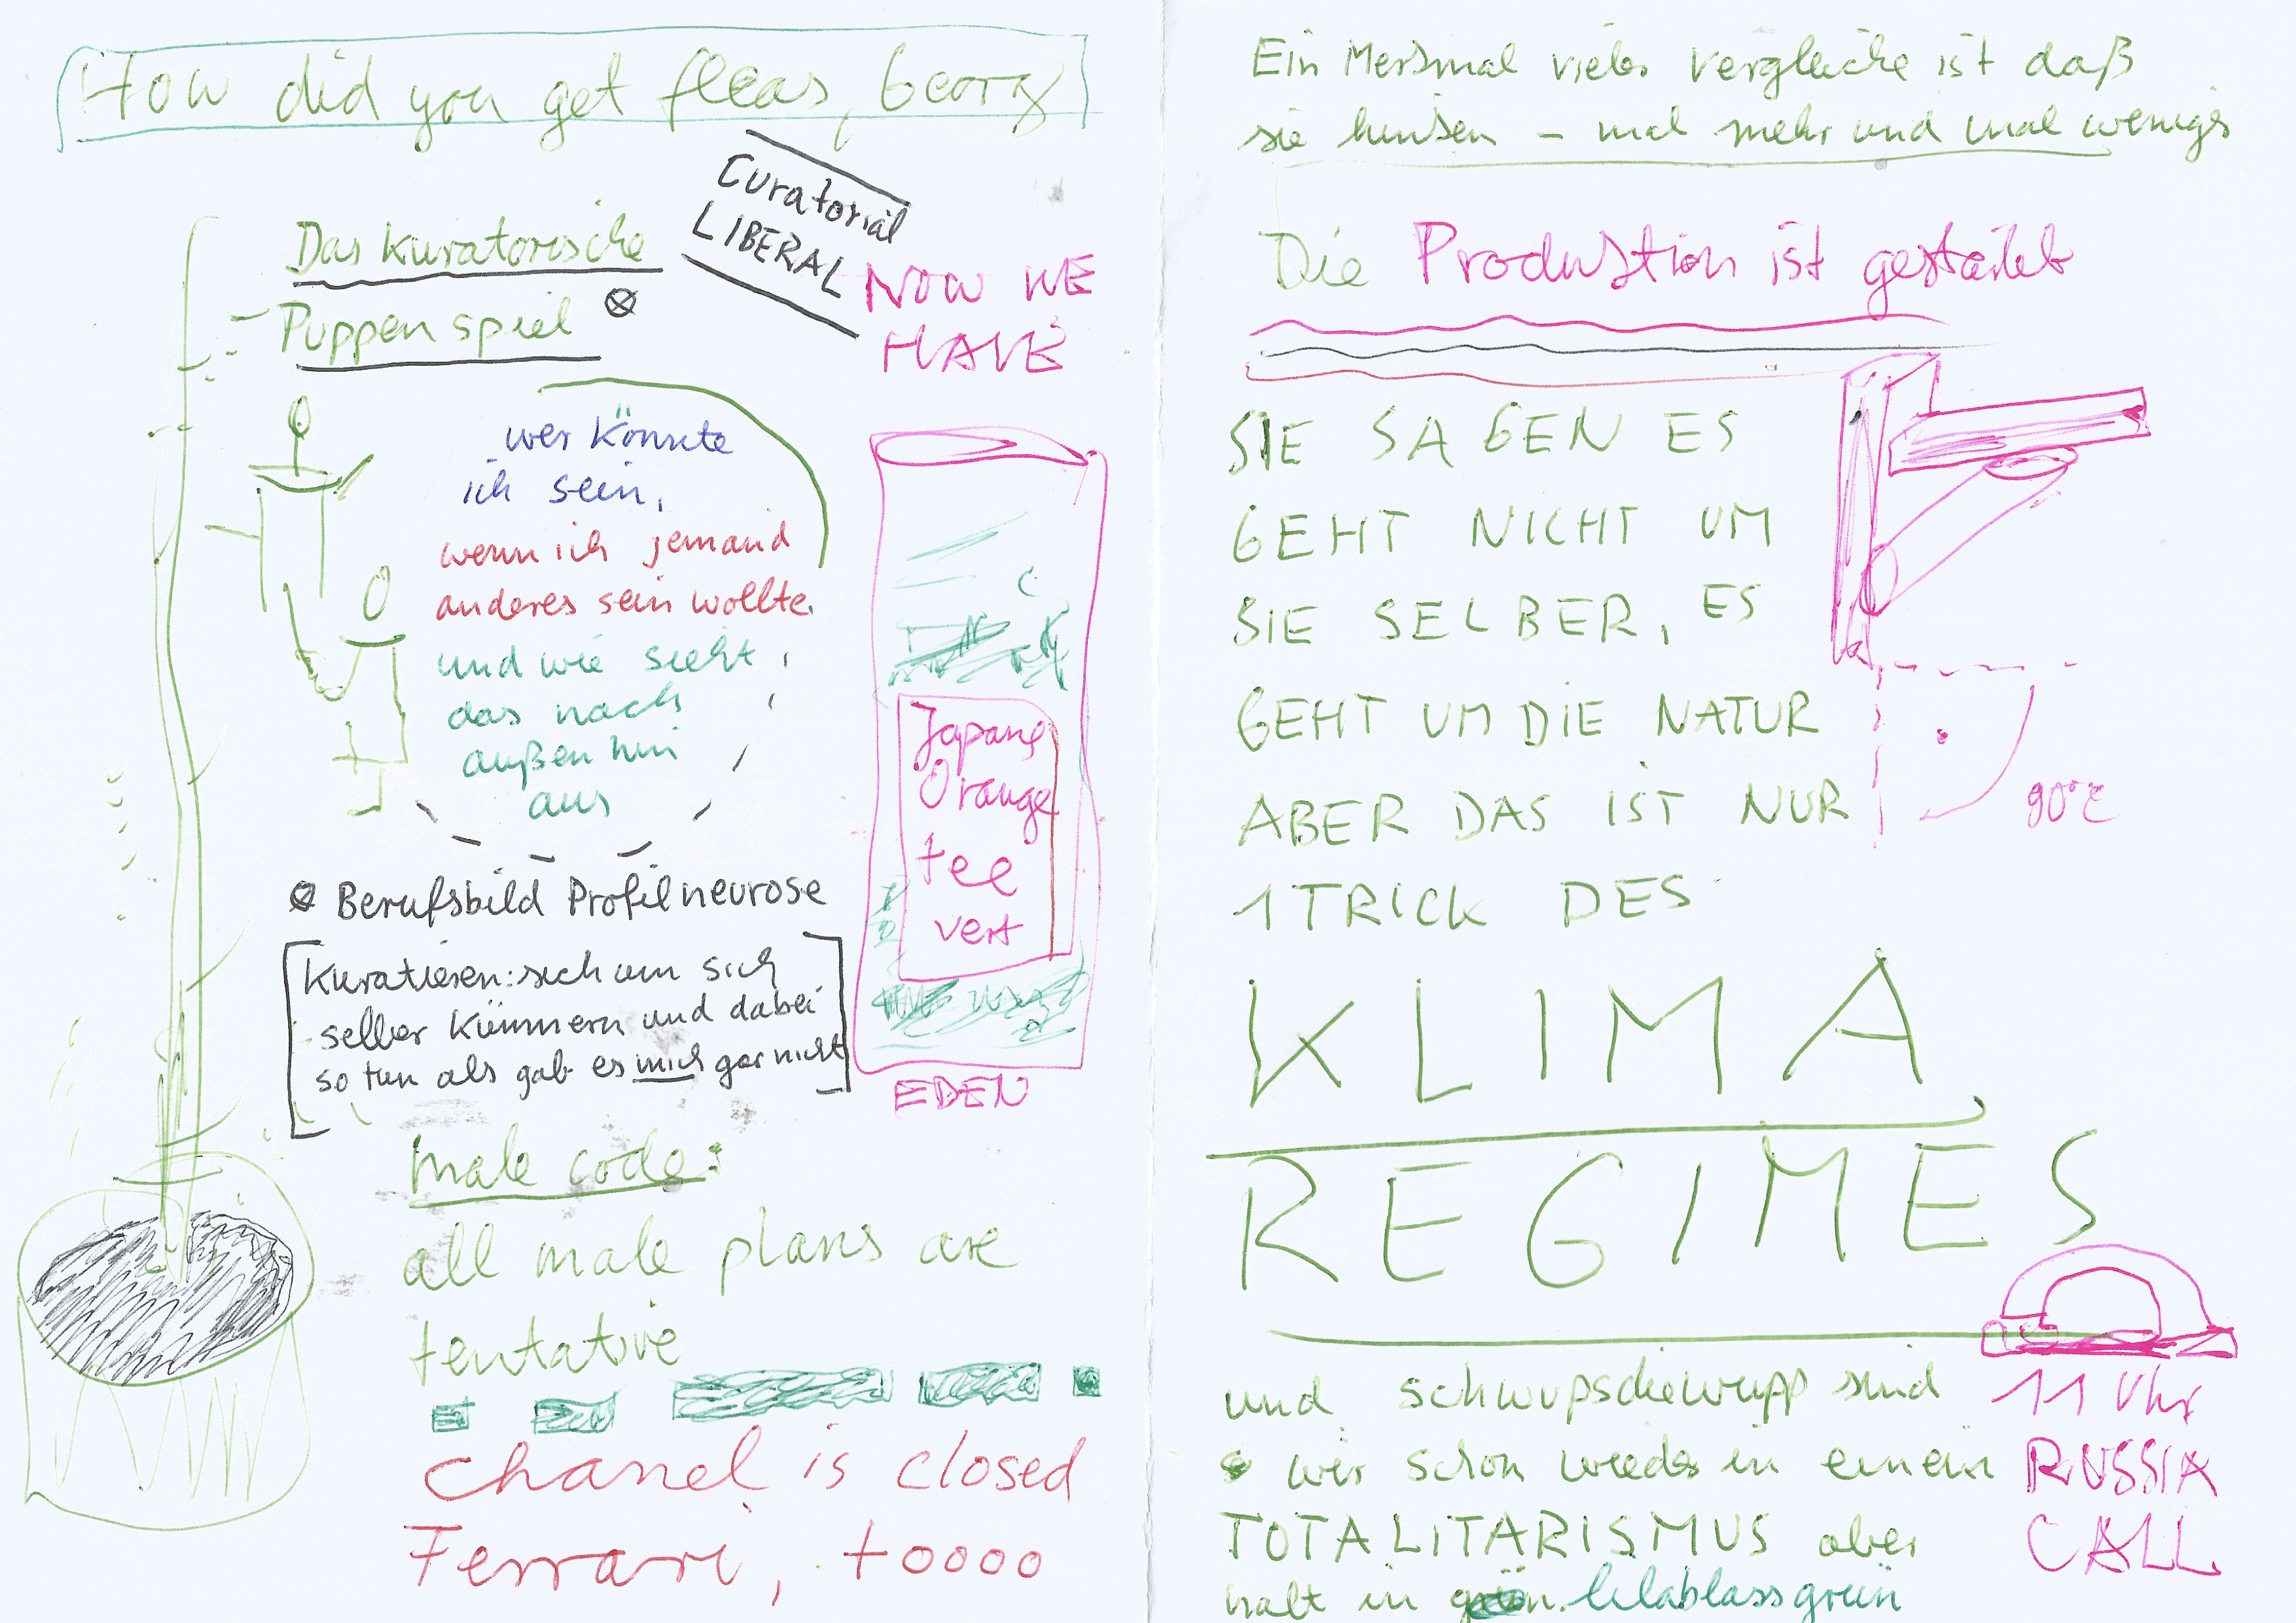 How did you get fleas, Georg
Curatorial
LIBERAL
Das Kuratorische
Puppenspiel ⊗
NOW WE
HAVE
wer könnte
ich sein,
wenn ich jemand
anderes sein wollte.
und wie sieht
das nach
außen hin
aus
Japang
Orange
tee
vert
EDEN
⊗ Berufsbild Profilneurose
[Kuratieren: sich um sich
selber kümmern und dabei
so tun als gab es mich gar nicht]
male code:
all male plans are
tentative
Chanel is closed
Ferrari, toooo
Ein Merkmal vieler Vergleiche ist daß
sie hinken – mal mehr und mal weniger
Die Produktion ist gestartet
SIE SAGEN ES
GEHT NICHT UM
SIE SELBER, ES
GEHT UM DIE NATUR
ABER DAS IST NUR
1 TRICK DES
90°C
KLIMA
REGIMES
und schwupsdiewupp sind
wir schon wieder in einem
TOTALITARISMUS aber
halt in grün. lilablassgrün
11 Uhr
RUSSIA
CALL